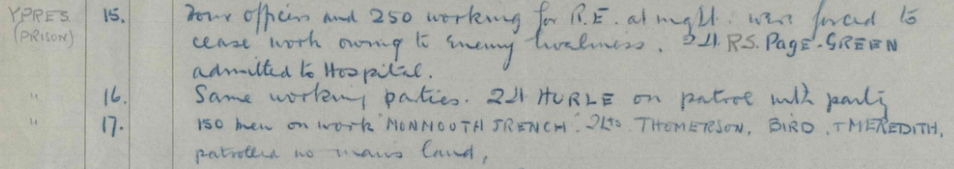 YPRES 15. Four officers and 250 working for R.E. at night. were forced to
(PRISON) cease work owing to enemy liveliness. 2Lt. R.S. PAGE-GREEN
admitted to Hospital.
" 16. Same working parties. 2Lt HURLE on patrol with party
" 17. 150 men on work "MONMOUTH TRENCH". 2Lts THOMERSON, BIRD, + MEREDITH,
patrolled no mans land,